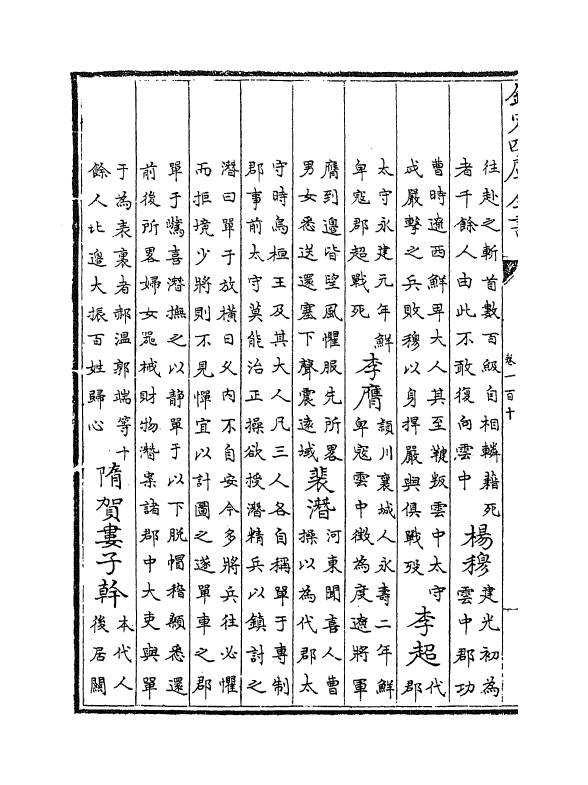 欽定四庫全書
卷一百十
往赴之斬首數百級自相轔藉死
者千餘人由此不敢復向雲中
楊穆
建光初為
雲中郡功
曹時遼西鮮卑大人其至鞬叛雲中太守
成嚴擊之兵敗穆以身捍嚴與俱戰歿
李超
代
郡
太守永建元年鮮
卑寇郡超戰死
李膺
頴川襄城人永壽二年鮮
卑寇雲中徵為度遼將軍
膺到邊皆望風懼服先所畧
男女悉送還塞下聲震遠域
裴潛
河東聞喜人曹
操以為代郡太
守時烏桓王及其大人凡三人各自稱單于專制
郡事前太守莫能治正操欲授潛精兵以鎮討之
潛曰單于放橫日久内不自安今多將兵往必懼
而拒境少將則不見憚宜以計圖之遂單車之郡
單于驚喜潛撫之以静單于以下脱帽稽顙悉還
前後所畧婦女器械財物潛案諸郡中大吏與單
于為表裏者郝温郭端等十
餘人北邊大振百姓歸心
隋賀婁子幹
本代人
後居關